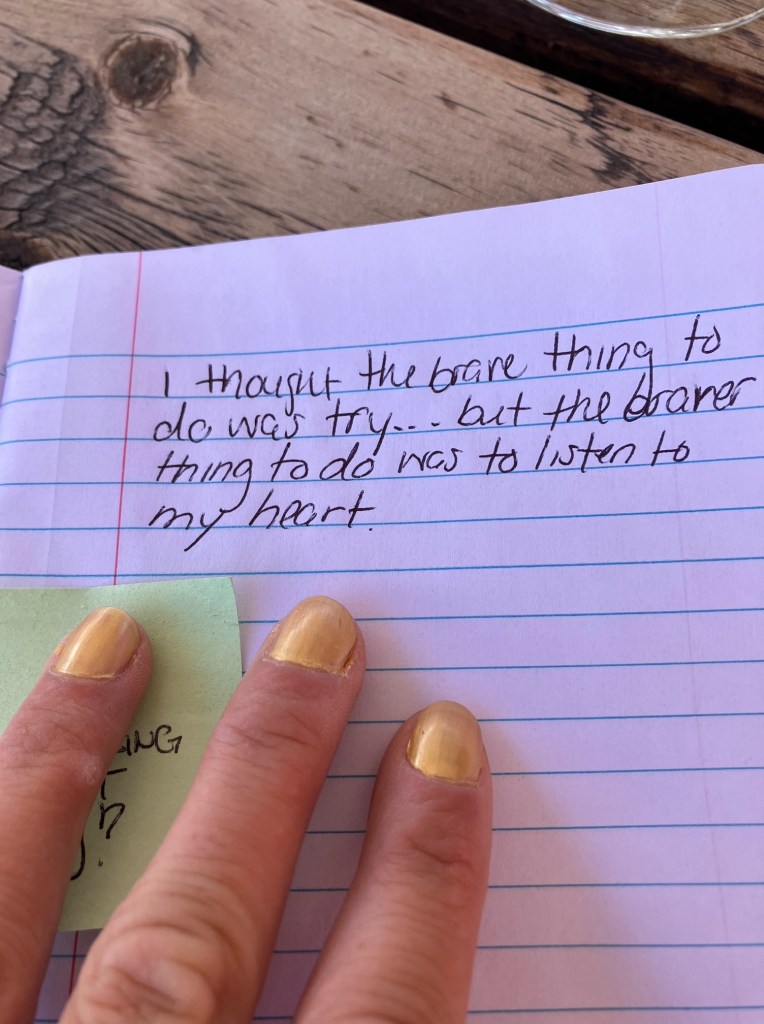 I thought the brave thing to
do was try... but the braver
thing to do was to listen to
my heart.